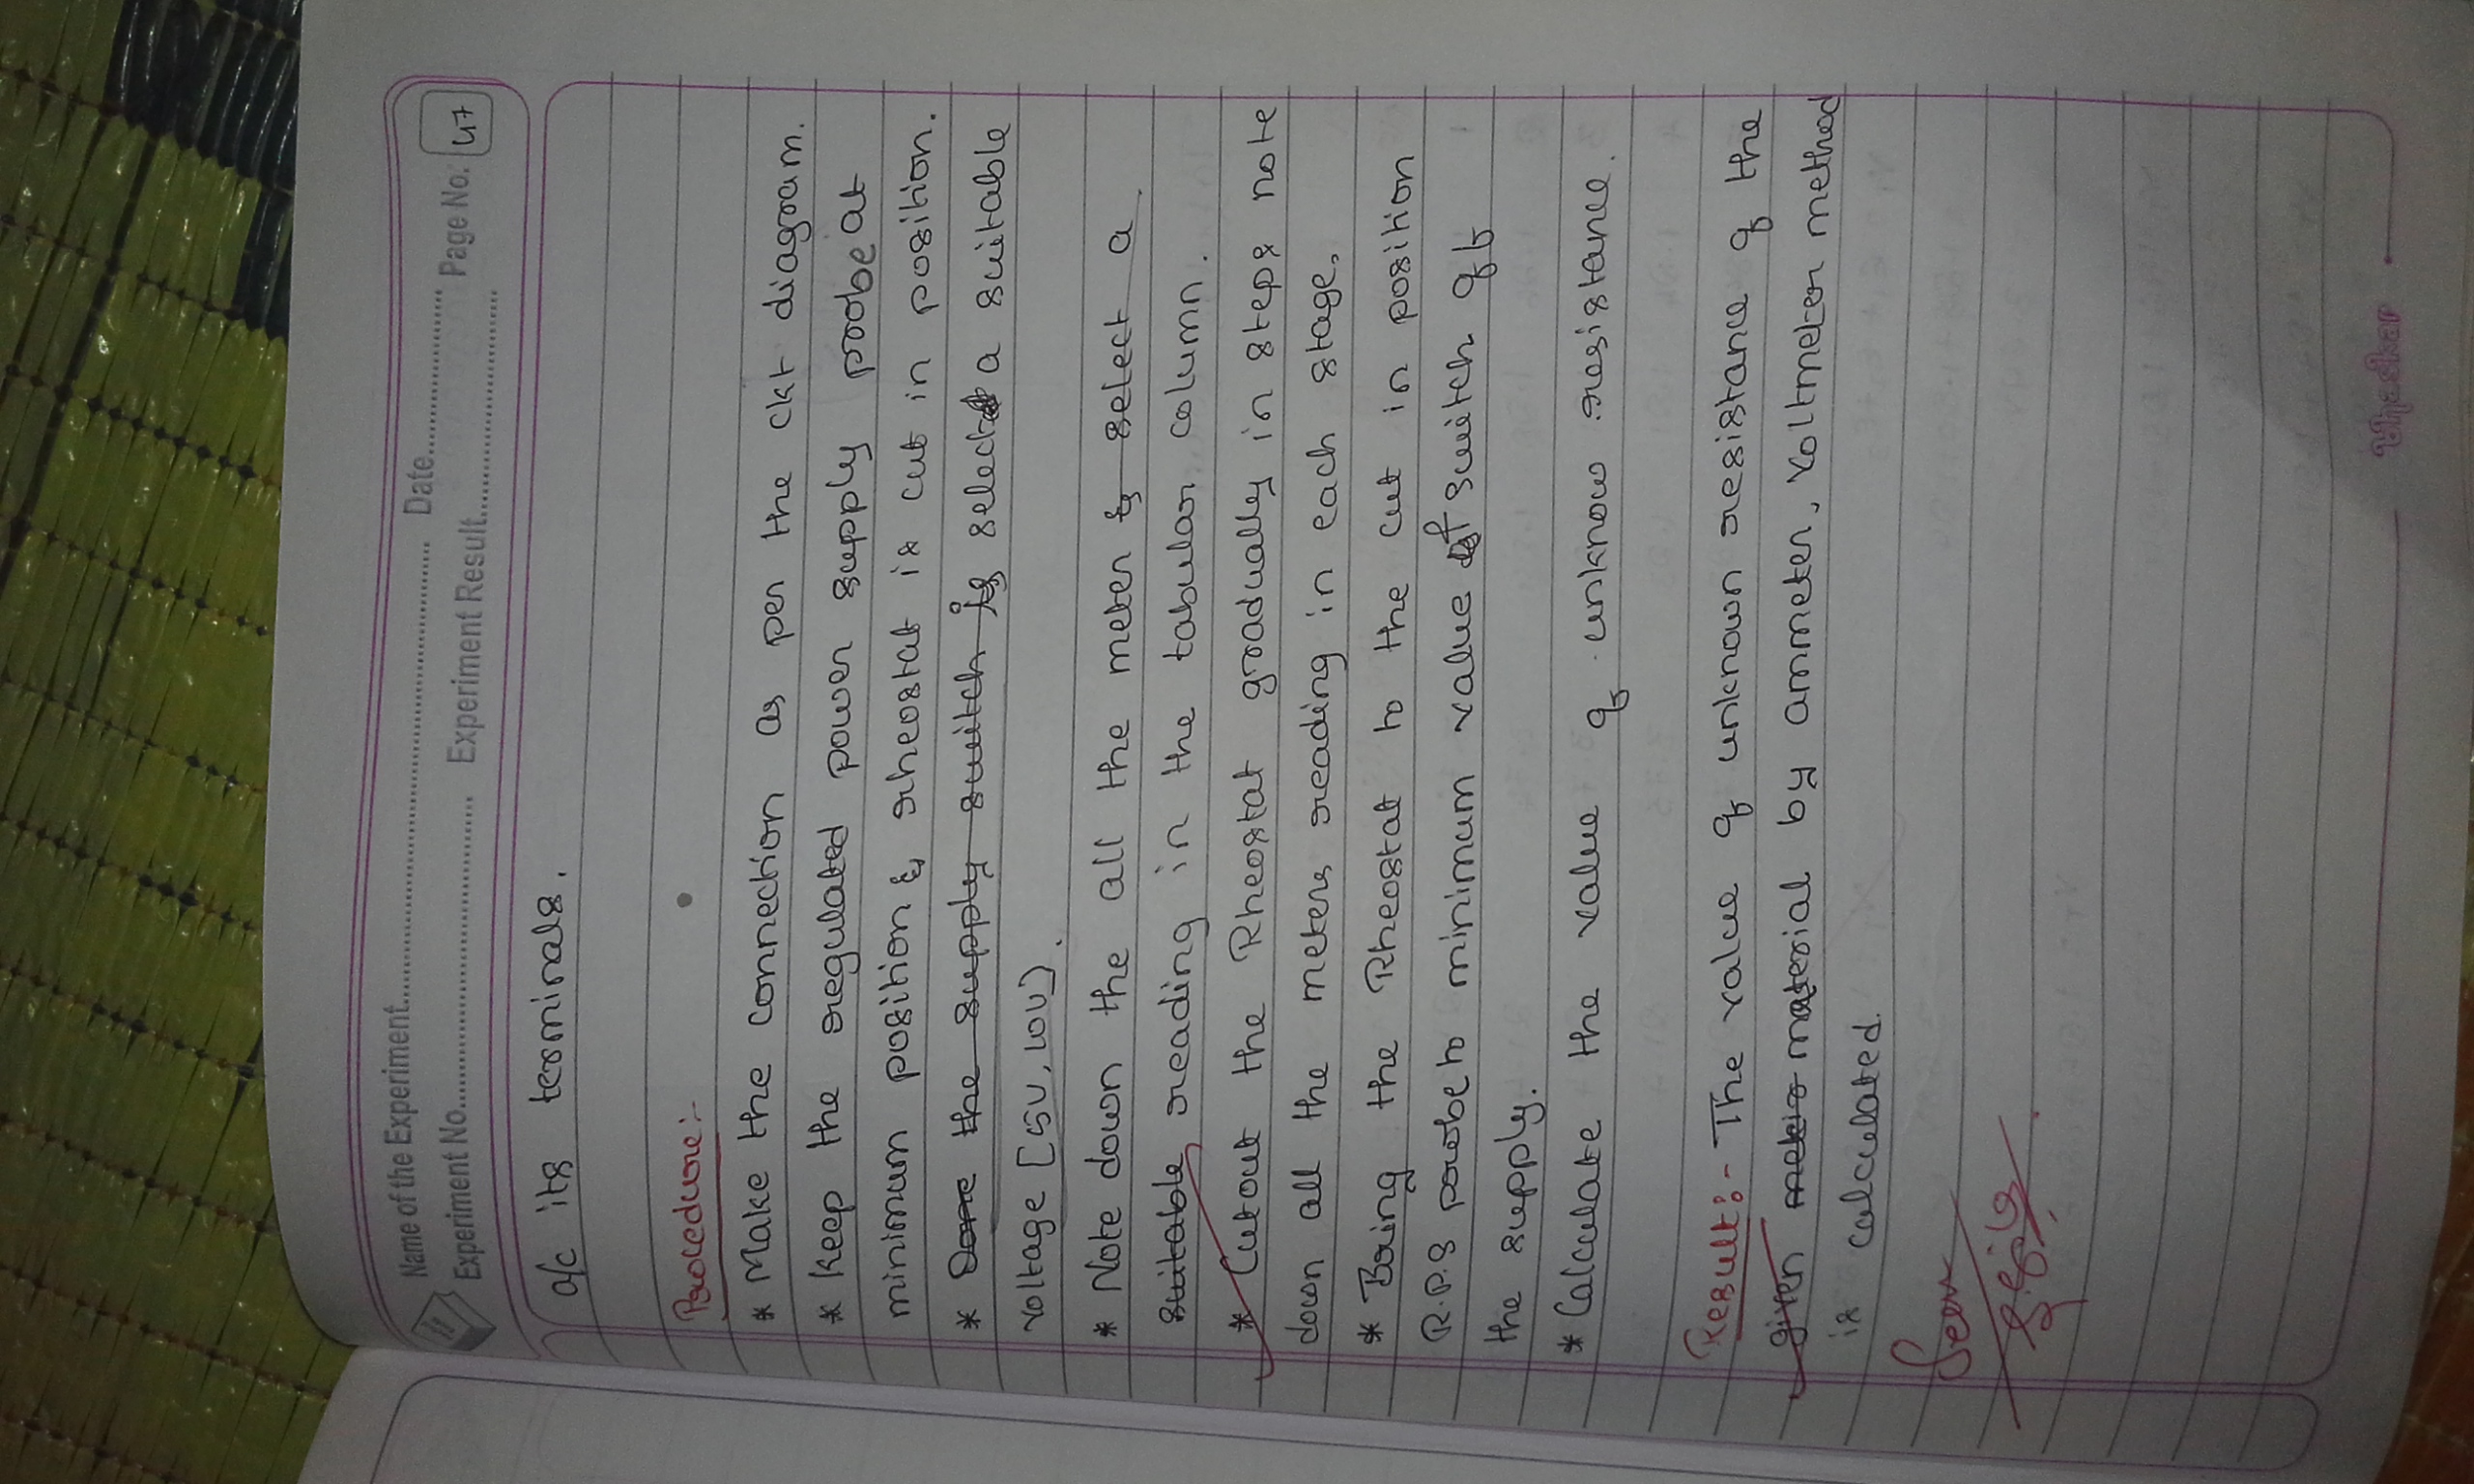 Name of the Experiment.................... Date....................
Experiment No.................... Experiment Result.................... Page No. 47
a/c its terminals.
Procedure:-
* Make the connection as per the ckt diagram.
* Keep the regulated power supply probe at
minimum position & rheostat is cut in position.
* Done the supply switch & select a suitable
voltage [5V, 10V].
* Note down the all the meter & select a
suitable reading in the tabular column.
* Cutout the Rheostat gradually in steps note
down all the meters reading in each stage.
* Bring the Rheostat to the cut in position
R.P.S probe to minimum value of switch off
the supply.
* Calculate the value of unknow resistance.
Result:- The value of unknown resistance of the
given material by ammeter, voltmeter method
is calculated.
Seen
Bhaskar